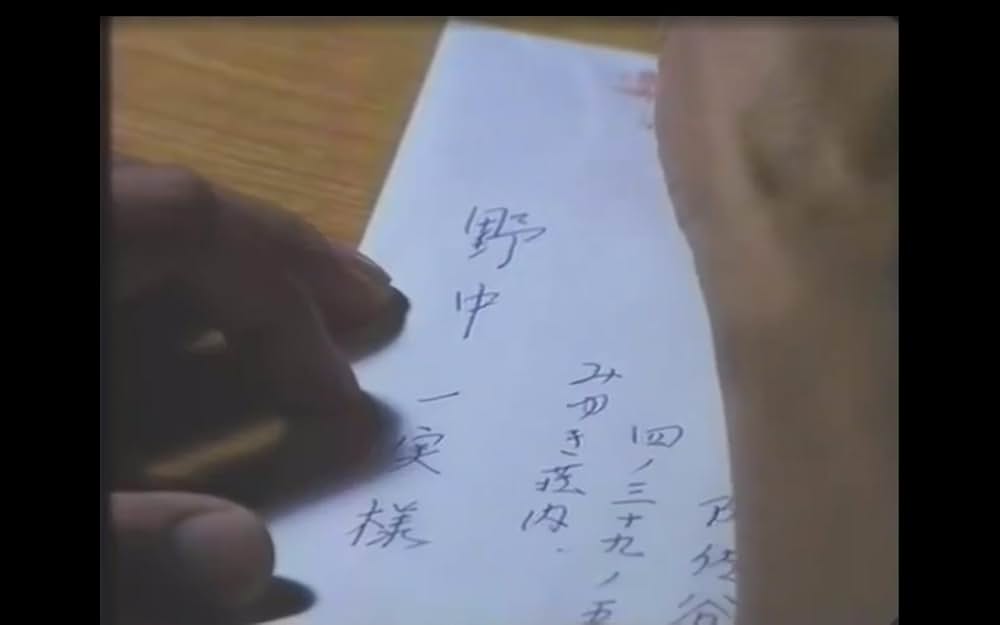 阿佐谷
四ノ三十九ノ五
みゆき荘内
野中一実様